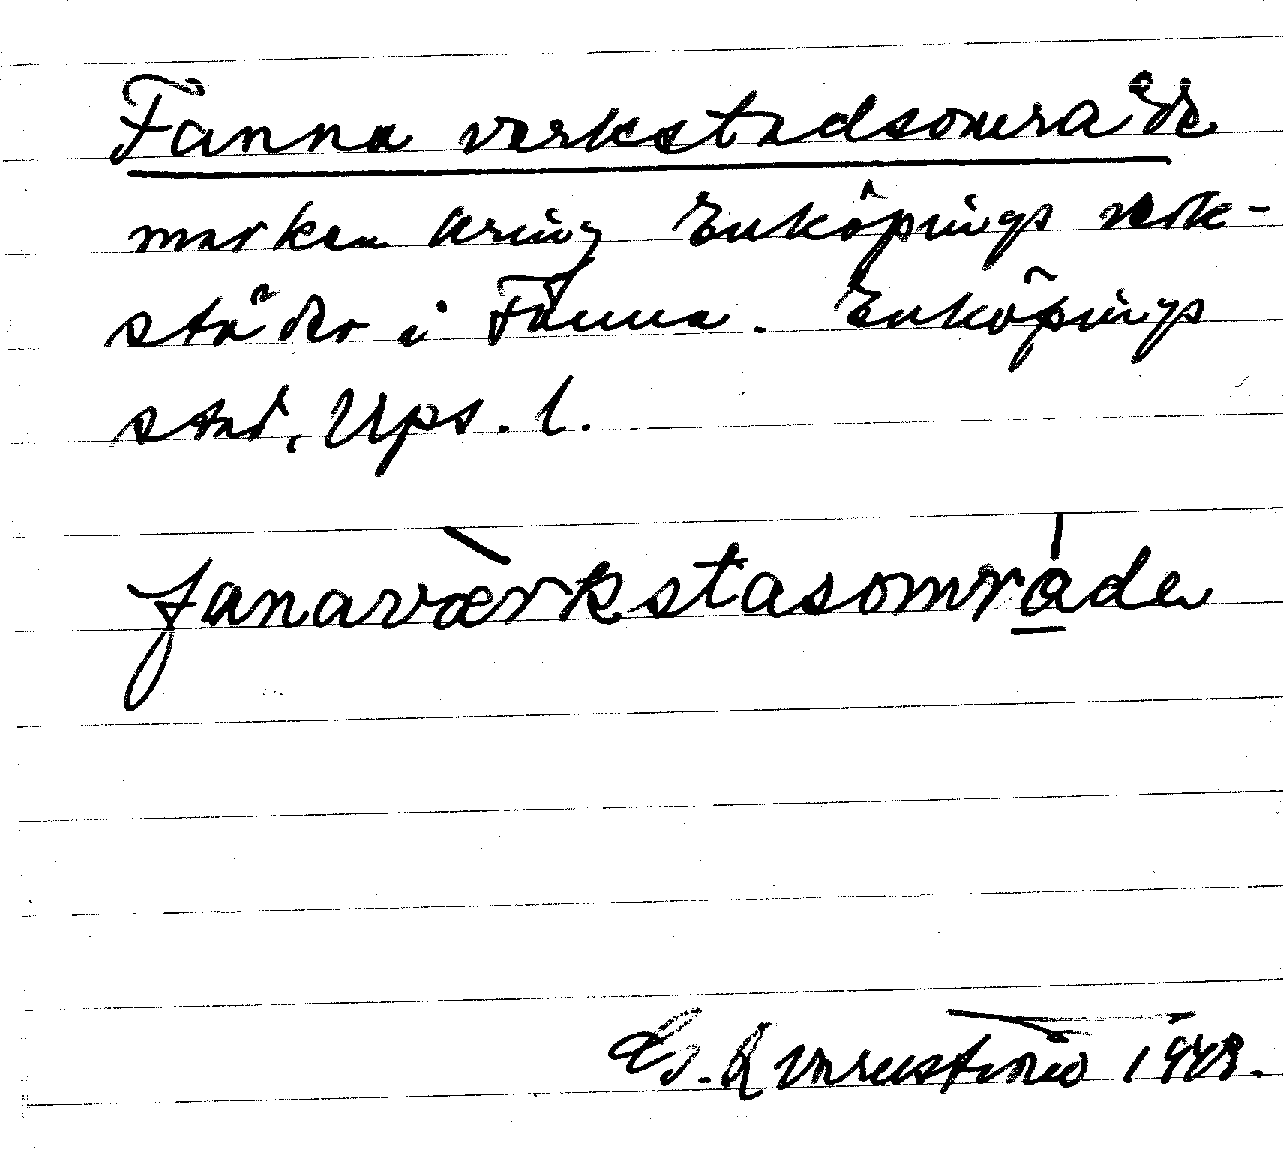 Fanna verkstadsområde
marken kring Enköpings verk-
städer i Fanna. Enköpings
stad, Ups. l.
fanavärkstasområde
1948.